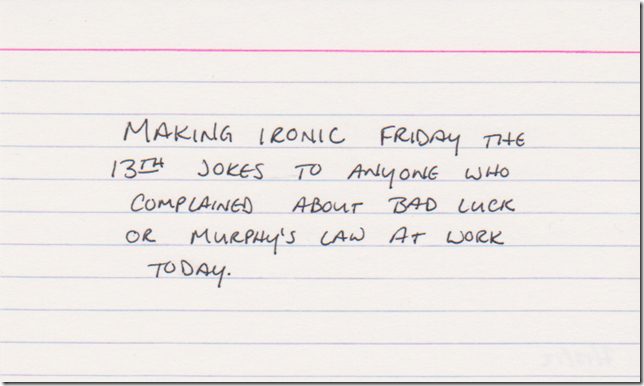 MAKING IRONIC FRIDAY THE
13TH JOKES TO ANYONE WHO
COMPLAINED ABOUT BAD LUCK
OR MURPHY'S LAW AT WORK
TODAY.